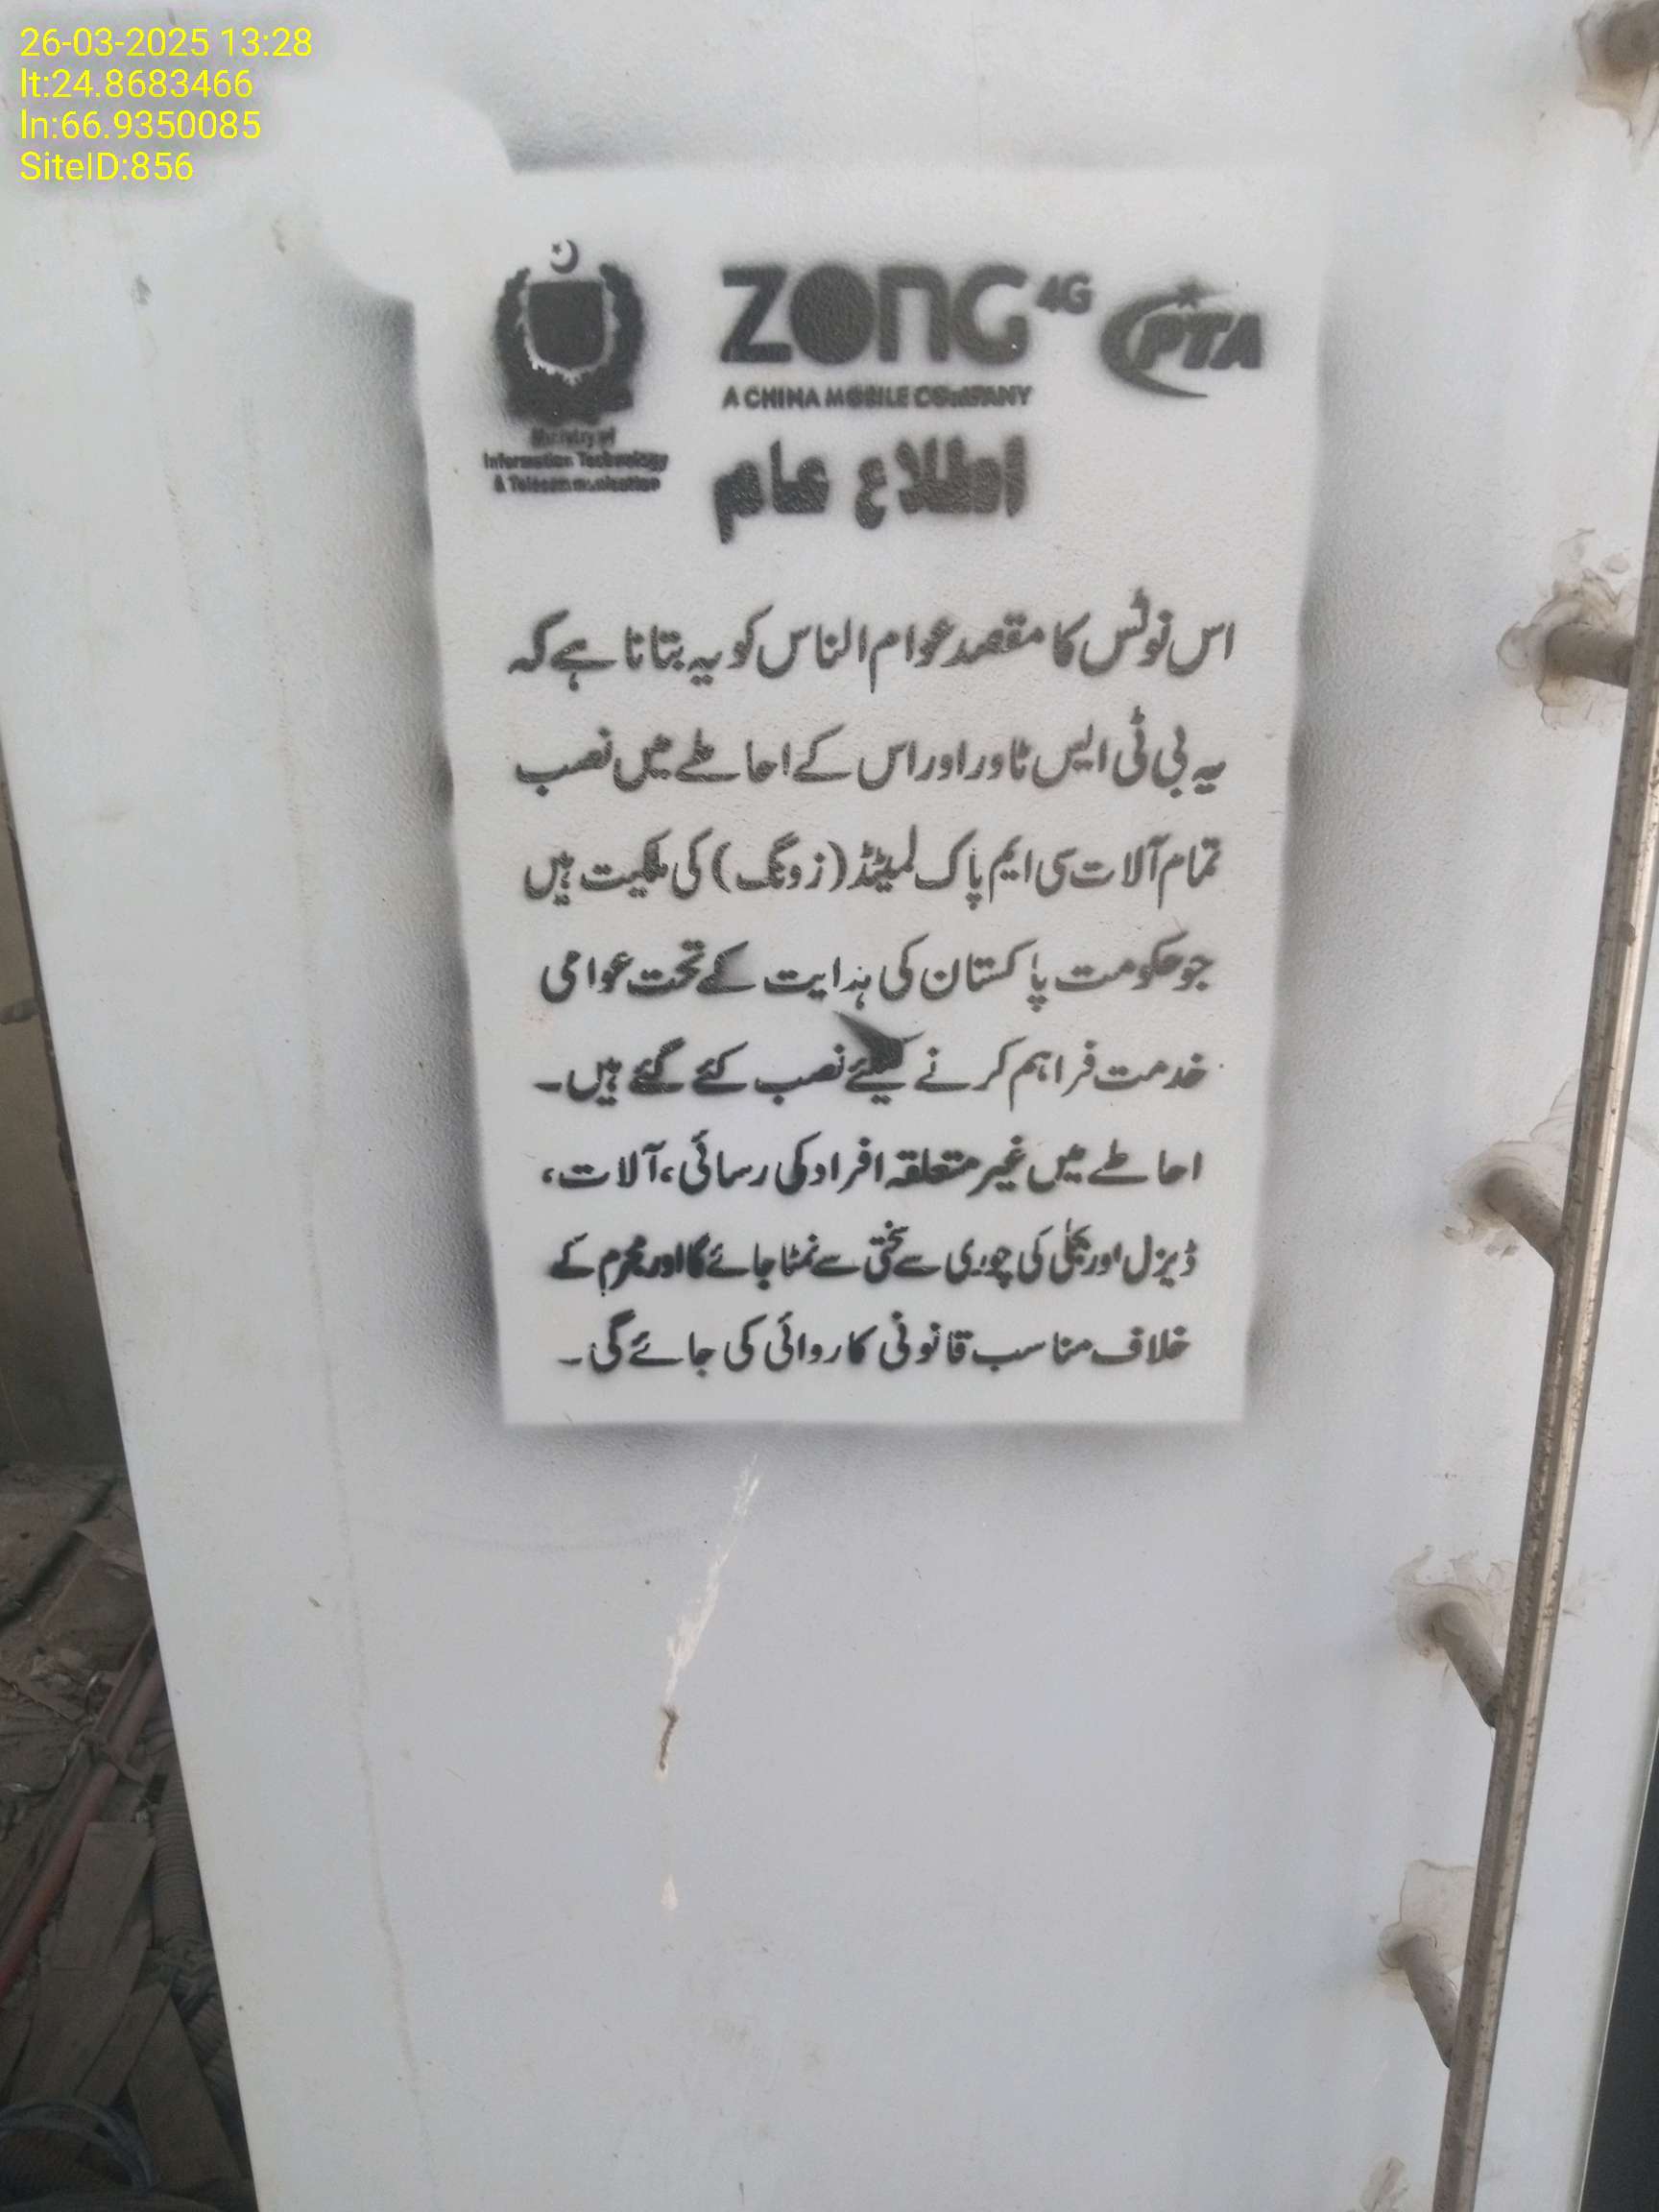 26-03-2025 13:28
lt:24.8683466
ln:66.9350085
SiteID:856
ZONG 4G
PTA
A CHINA MOBILE COMPANY
Ministry of
Information Technology
& Telecommunication
اطلاع عام
اس نوٹس کا مقصد عوام الناس کو یہ بتانا ہے کہ
یہ بی ٹی ایس ٹاور اور اس کے احاطے میں نصب
تمام آلات سی ایم پاک لمیٹڈ (زونگ) کی ملکیت ہیں
جو حکومت پاکستان کی ہدایت کے تحت عوامی
خدمت فراہم کرنے کیلئے نصب کئے گئے ہیں۔
احاطے میں غیر متعلقہ افراد کی رسائی، آلات،
ڈیزل اور بجلی کی چوری سے سختی سے نمٹا جائے گا اور مجرم کے
خلاف مناسب قانونی کاروائی کی جائے گی۔